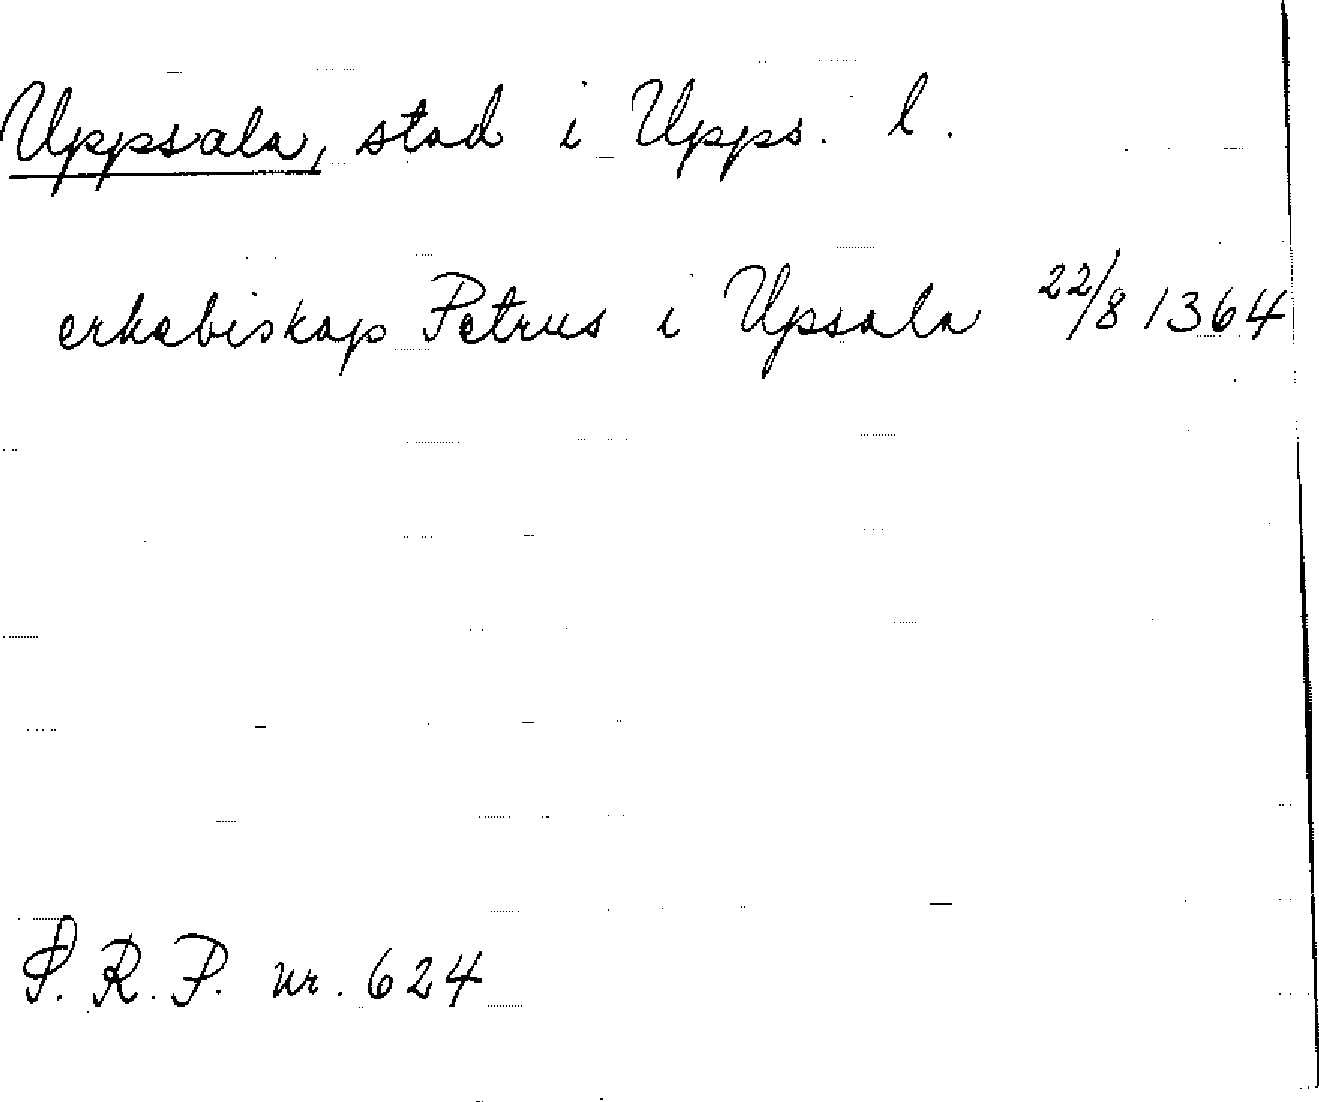 Uppsala, stad i Upps. l.
erkebiskop Petrus i Upsala 22/8 1364
S. R. P. nr. 624